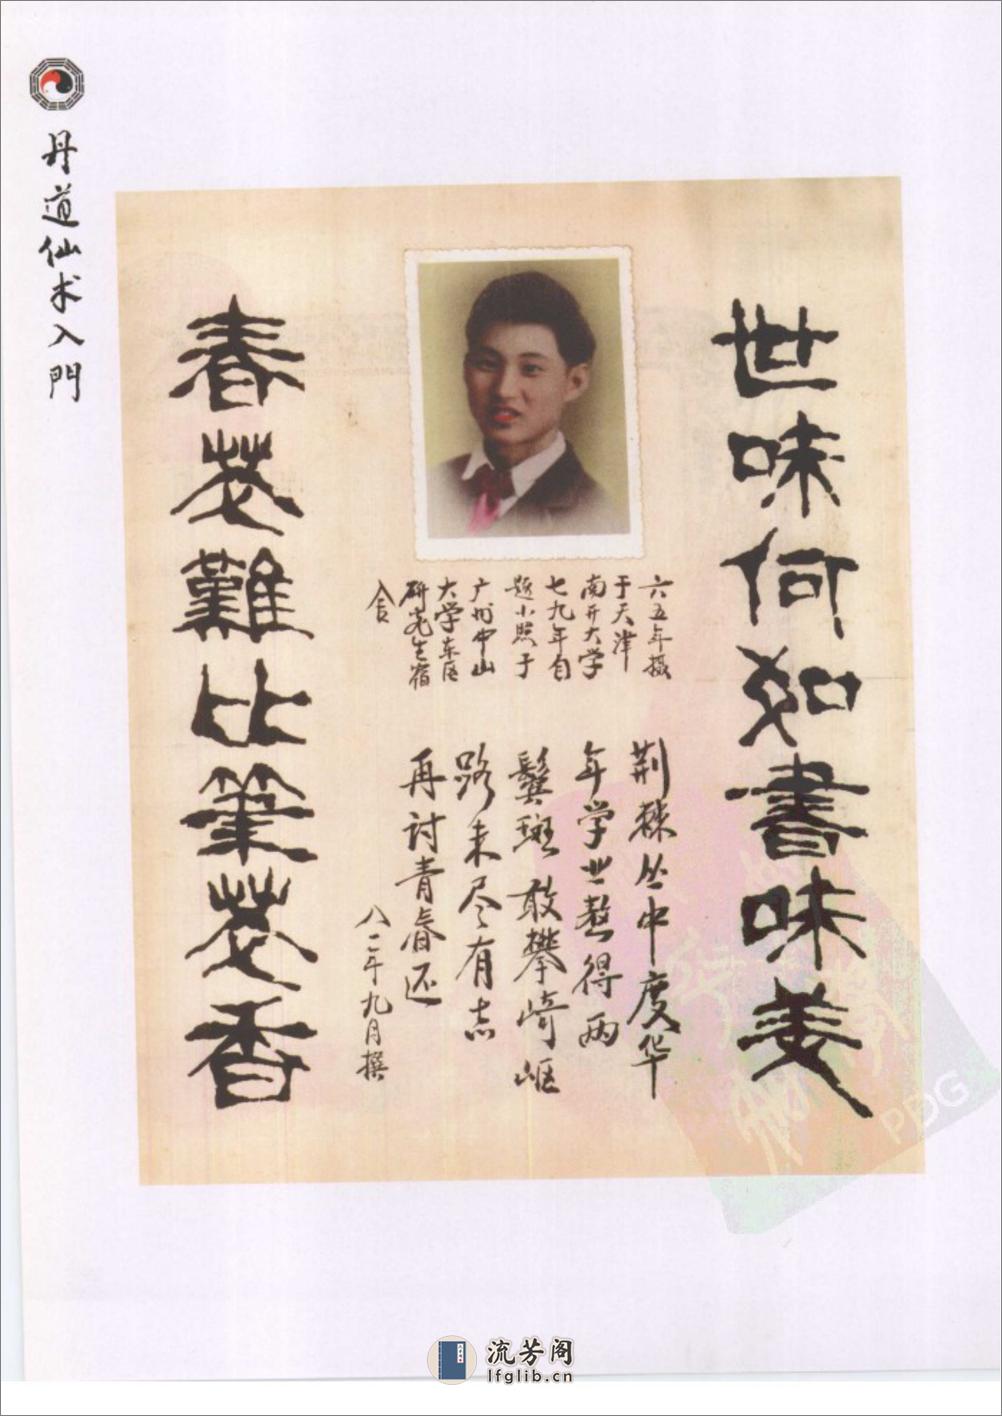 丹道仙术入門
世味何如書味美
春花難比筆花香
六五年摄
于天津
南开大学
七九年自
题小照于
广州中山
大学东区
研究生宿
舍
荆棘丛中度华
年学业熬得两
鬓斑敢攀崎岖
路未尽有志
再讨青春还
八二年九月撰
PDG
流芳阁
lfglib.cn